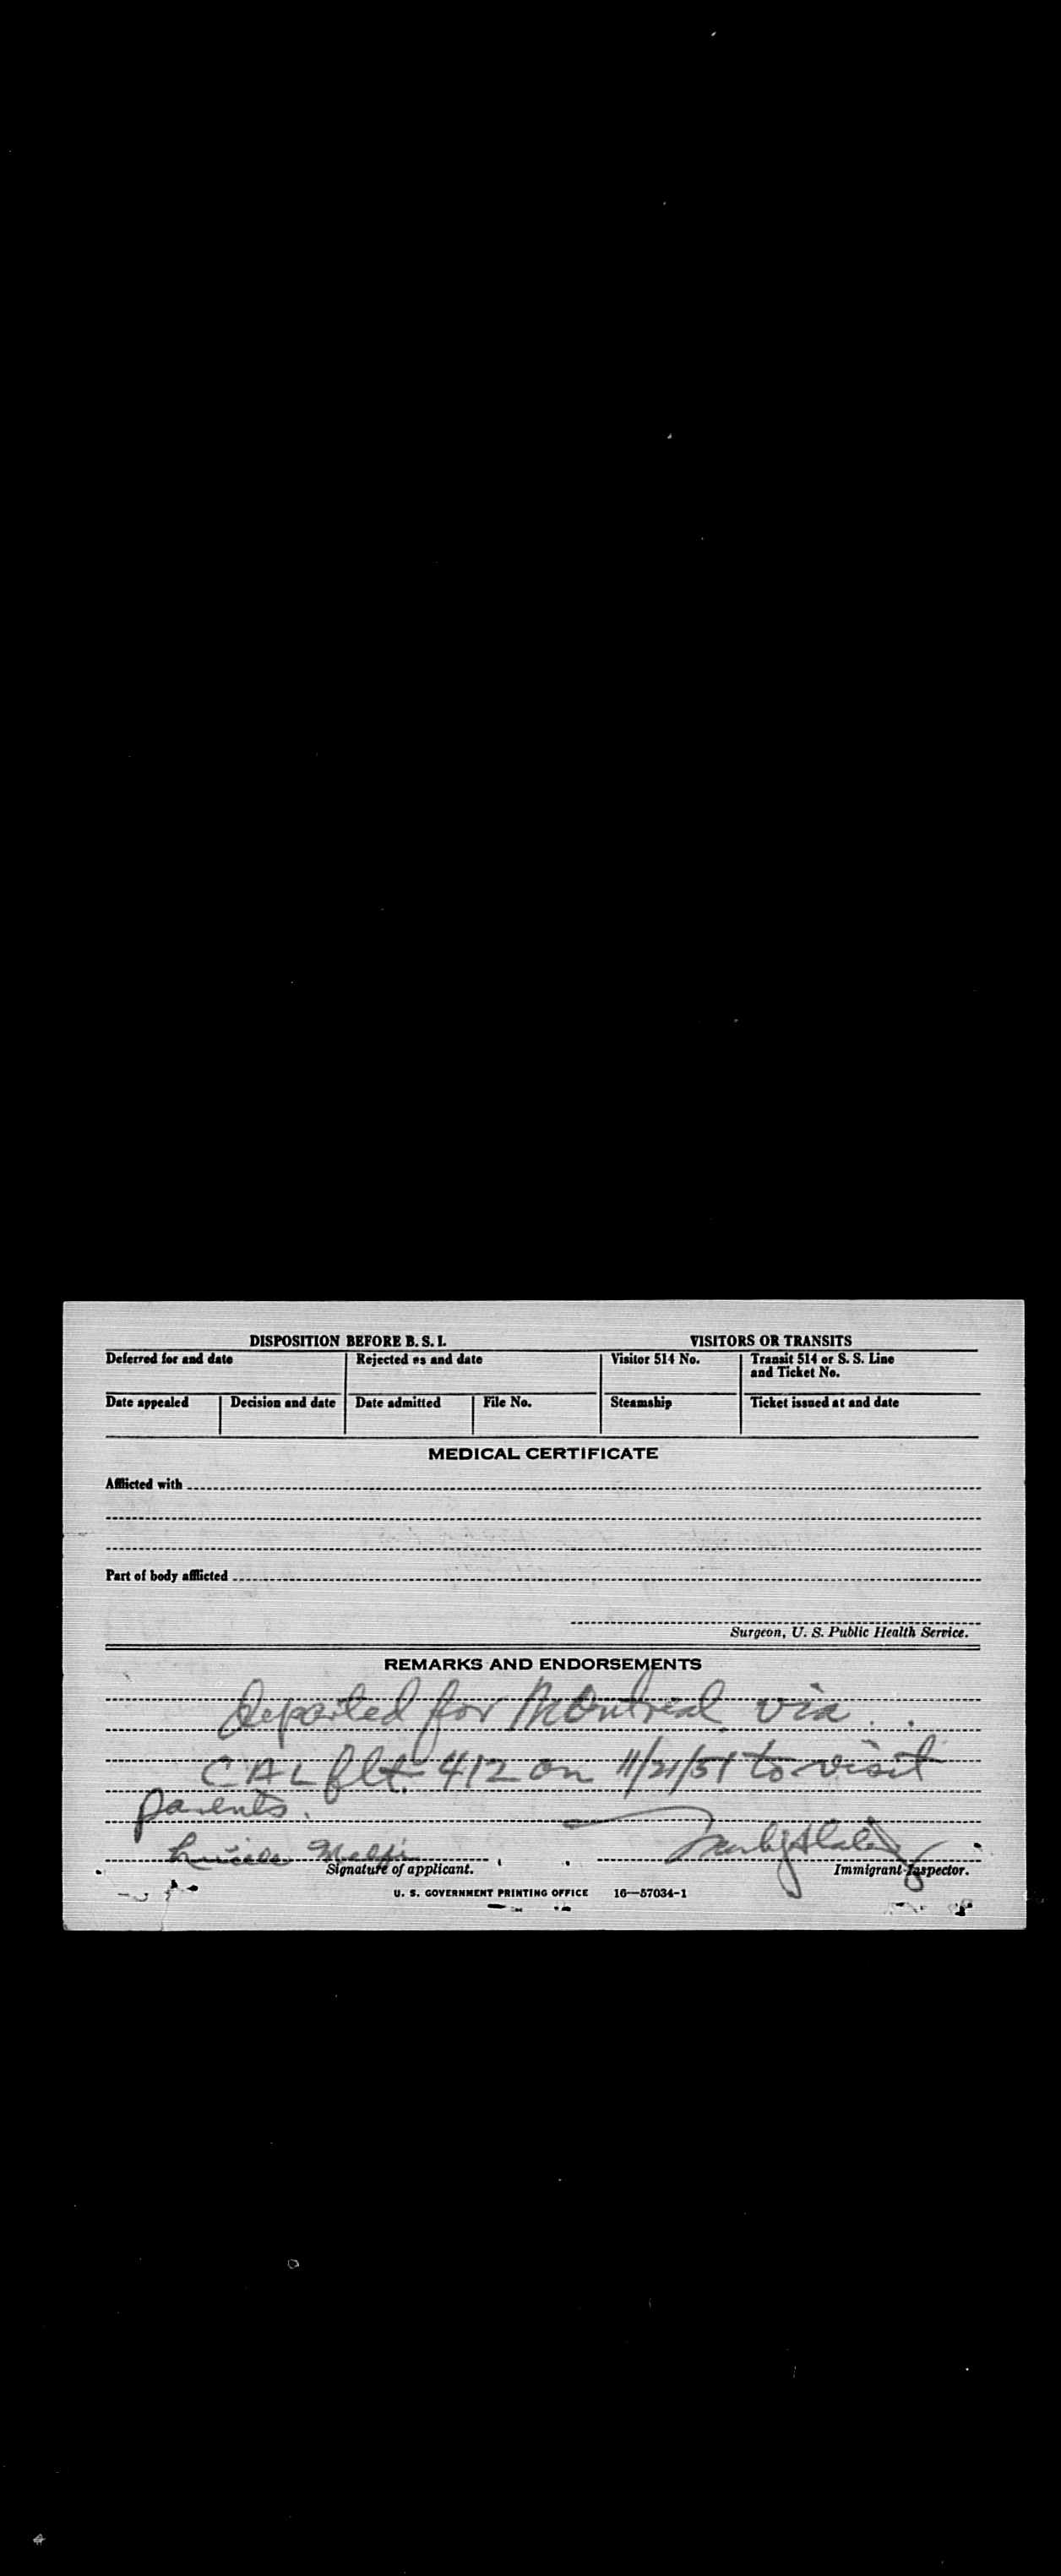 DISPOSITION BEFORE B. S. I.
VISITORS OR TRANSITS
Deferred for and date
Rejected as and date
Visitor 514 No.
Transit 514 or S. S. Line
and Ticket No.
Date appealed
Decision and date
Date admitted
File No.
Steamship
Ticket issued at and date
MEDICAL CERTIFICATE
Afflicted with
Part of body afflicted
Surgeon, U. S. Public Health Service.
REMARKS AND ENDORSEMENTS
departed for Montreal via
CAL flt 412 on 11/21/51 to visit
parents.
Signature of applicant.
Immigrant Inspector.
U. S. GOVERNMENT PRINTING OFFICE 16—57034-1